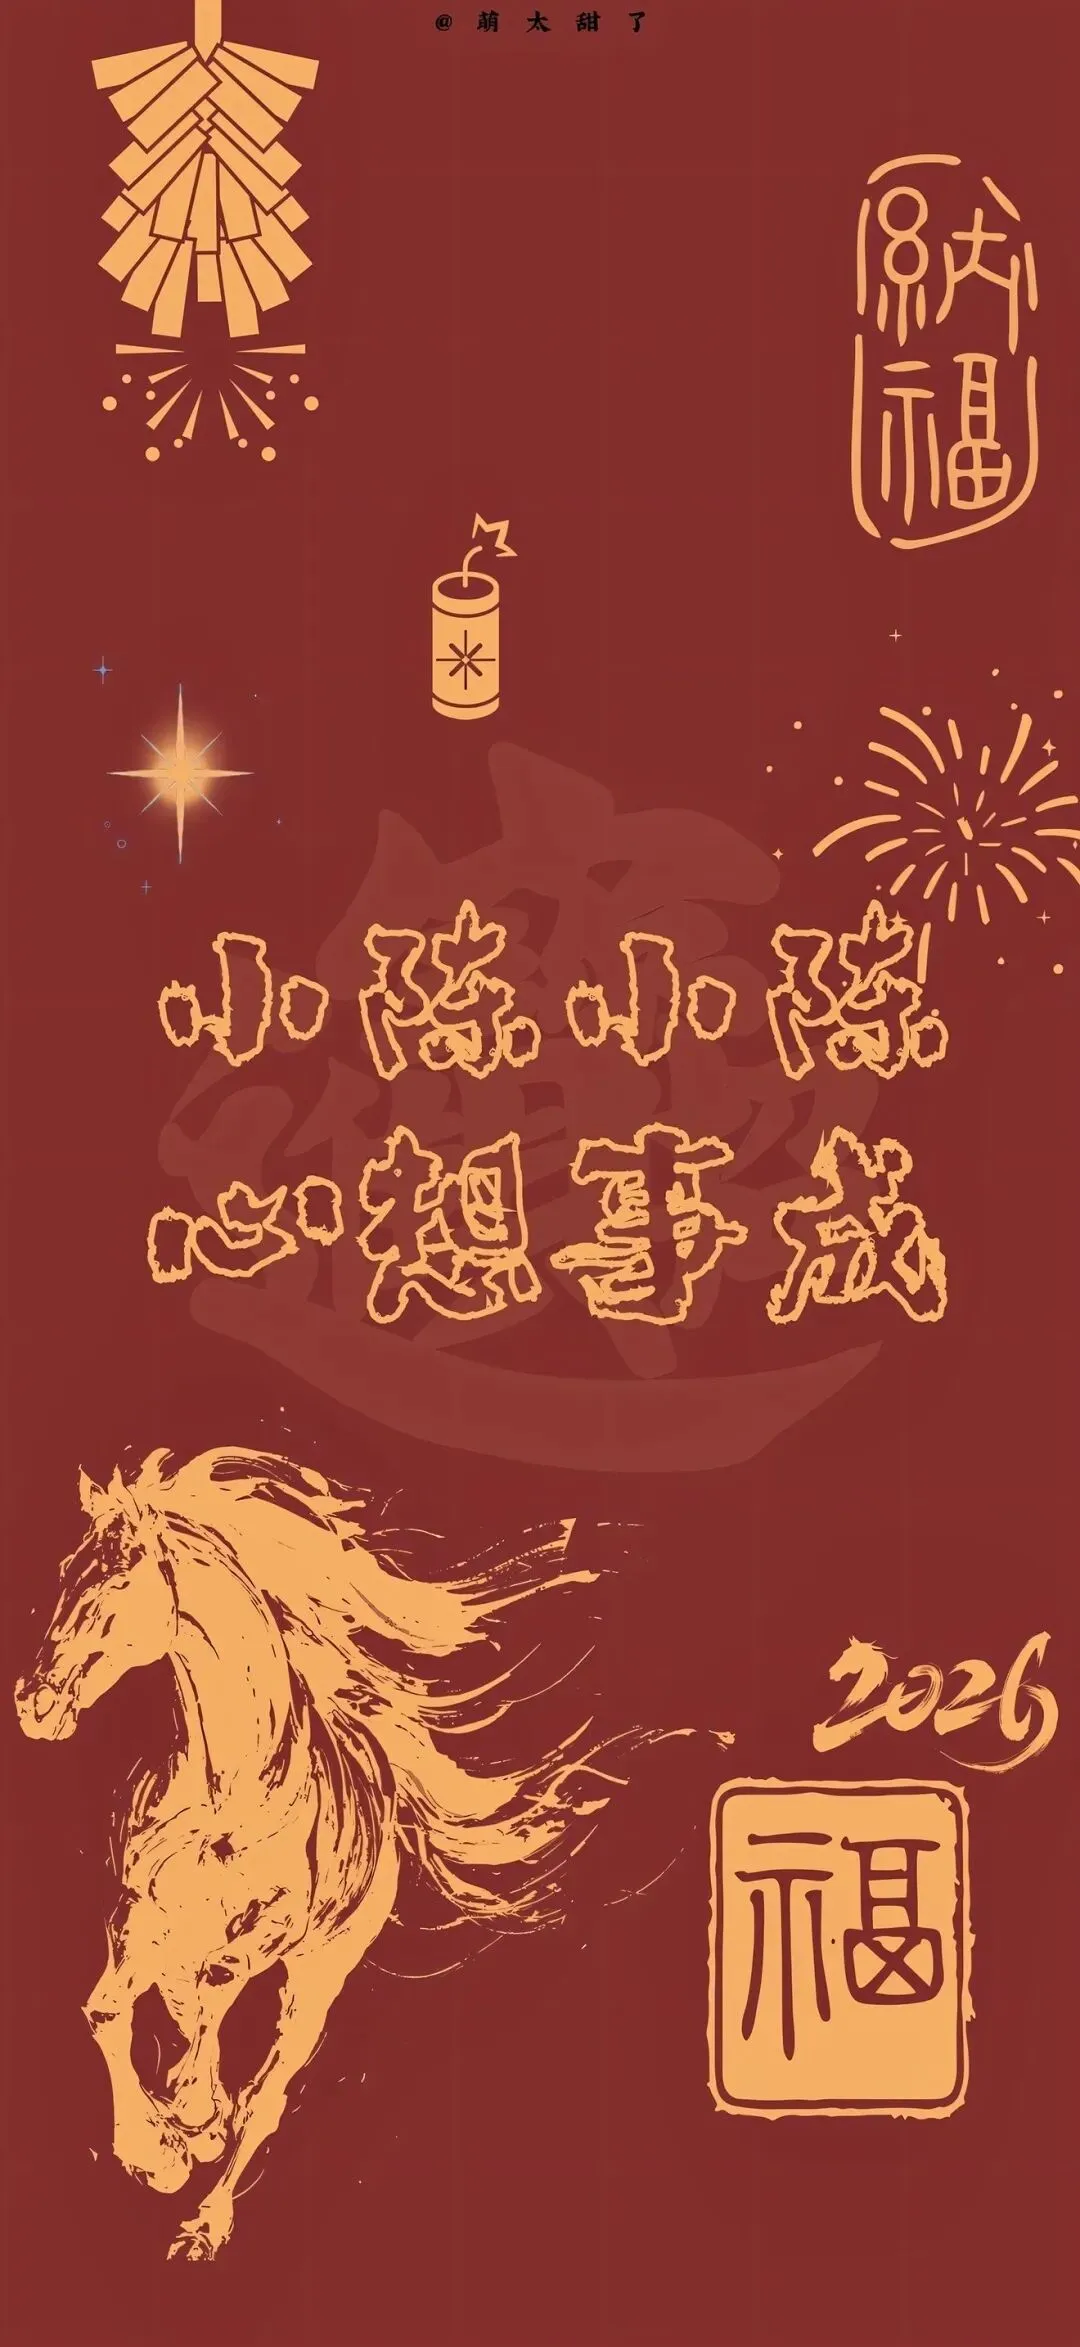 @萌太甜了
納福
小陈小陈
心想事成
2026
福